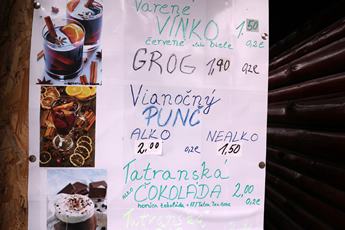 Varené
VÍNKO 1,50
červené alebo biele 0,2ℓ
GROG 1,90 0,2ℓ
Vianočný
PUNČ
ALKO NEALKO
2,00 0,2ℓ 1,50
Tatranská
ČOKOLÁDA 2,00
horúca čokoláda + 0,2ℓ
Tatranská